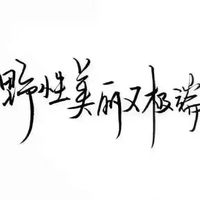 野性美丽又极端